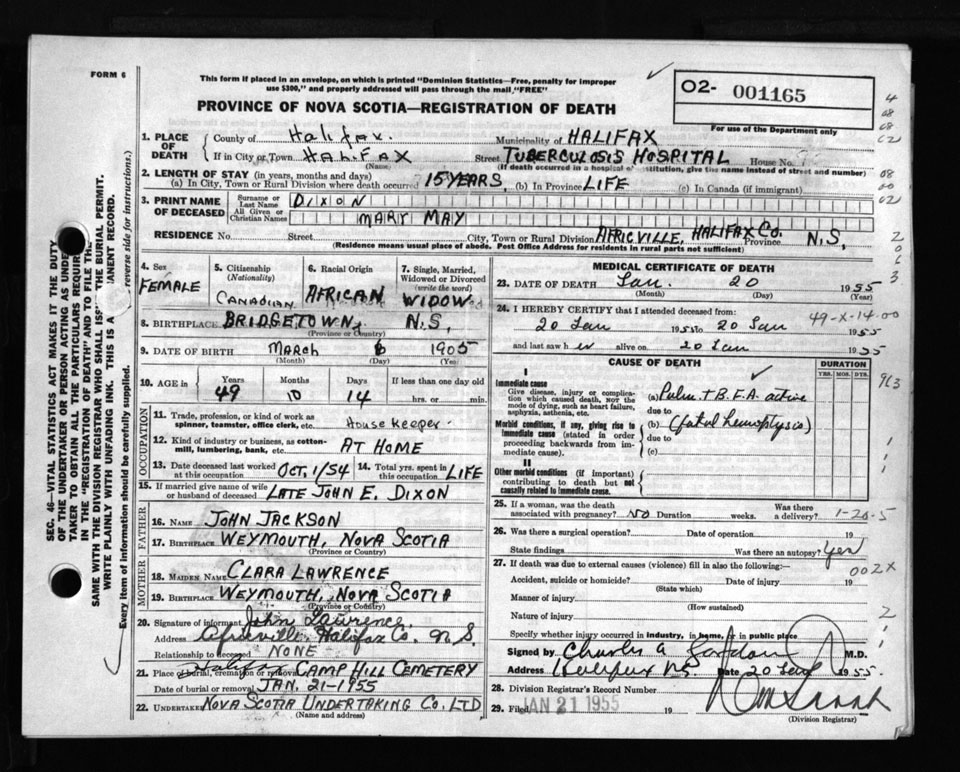 FORM 6
This form if placed in an envelope, on which is printed "Dominion Statistics—Free, penalty for improper
use $300," and properly addressed will pass through the mail "FREE"
PROVINCE OF NOVA SCOTIA—REGISTRATION OF DEATH
O2- 001165
For use of the Department only
1. PLACE OF DEATH
County of Halifax. Municipality of HALIFAX
If in City or Town HALIFAX (Name) Street TUBERCULOSIS HOSPITAL House No.
(If death occurred in a hospital or institution, give the name instead of street and number)
2. LENGTH OF STAY (in years, months and days)
(a) In City, Town or Rural Division where death occurred 15 YEARS, (b) In Province LIFE (c) In Canada (if immigrant)
3. PRINT NAME OF DECEASED
Surname or Last Name DIXON
All Given or Christian Names MARY MAY
RESIDENCE No. Street City, Town or Rural Division AFRICVILLE, HALIFAX CO. Province N.S,
(Residence means usual place of abode. Post Office Address for residents in rural parts not sufficient)
4. Sex FEMALE
5. Citizenship (Nationality) CANADIAN
6. Racial Origin AFRICAN
7. Single, Married, Widowed or Divorced (write the word) WIDOW
8. BIRTHPLACE BRIDGETOWN, N.S,
(Province or Country)
9. DATE OF BIRTH March 6 1905
(Month) (Day) (Yr.)
10. AGE in Years 49 Months 10 Days 14 If less than one day old hrs. or min.
OCCUPATION
11. Trade, profession, or kind of work as spinner, teamster, office clerk, etc. House keeper.
12. Kind of industry or business, as cotton-mill, lumbering, bank, etc. AT HOME
13. Date deceased last worked at this occupation OCT. 1/54 14. Total yrs. spent in this occupation LIFE
15. If married give name of wife or husband of deceased LATE JOHN E. DIXON
FATHER
16. NAME JOHN JACKSON
17. BIRTHPLACE WEYMOUTH, NOVA SCOTIA
(Province or Country)
MOTHER
18. MAIDEN NAME CLARA LAWRENCE
19. BIRTHPLACE WEYMOUTH, NOVA SCOTIA
(Province or Country)
20. Signature of informant John Lawrence.
Address Africville, Halifax Co. N.S.
Relationship to deceased NONE
21. Place of burial, cremation or removal Halifax CAMP HILL CEMETERY
Date of burial or removal JAN. 21-1955
22. UNDERTAKER NOVA SCOTIA UNDERTAKING CO. LTD
(Name and address)
MEDICAL CERTIFICATE OF DEATH
23. DATE OF DEATH Jan. 20 1955
(Month) (Day) (Year)
24. I HEREBY CERTIFY that I attended deceased from: 49-X-14-00
20 Jan 1955 to 20 Jan 1955
and last saw her alive on 20 Jan 1955
CAUSE OF DEATH
DURATION
YRS. MOS. DYS.
I
Immediate cause
Give disease, injury or complication which caused death, NOT the mode of dying, such as heart failure, asphyxia, asthenia, etc.
(a) Pulm. T.B. F.A. active
due to
Morbid conditions, if any, giving rise to immediate cause (stated in order proceeding backwards from immediate cause).
(b) (fatal hemoptysis)
due to
(c)
II
Other morbid conditions (if important) contributing to death but not causally related to immediate cause.
25. If a woman, was the death associated with pregnancy? NO Duration weeks. Was there a delivery? 1-20-5
26. Was there a surgical operation? Date of operation 19
State findings Was there an autopsy? Yes
27. If death was due to external causes (violence) fill in also the following:— 002X
Accident, suicide or homicide? Date of injury 19
(State which)
Manner of injury
(How sustained)
Nature of injury
Specify whether injury occurred in industry, in home, or in public place
Signed by Charles A. Gordon M.D.
Address Halifax N.S. Date 20 Jan 1955
28. Division Registrar's Record Number
29. Filed JAN 21 1955 19
(Division Registrar)
SEC. 46—VITAL STATISTICS ACT MAKES IT THE DUTY
OF THE UNDERTAKER OR PERSON ACTING AS UNDER
TAKER TO OBTAIN ALL THE PARTICULARS REQUIRED
IN THE "REGISTRATION OF DEATH" AND TO FILE THE
SAME WITH THE DIVISION REGISTRAR WHO SHALL ISSUE THE BURIAL PERMIT.
WRITE PLAINLY WITH UNFADING INK. THIS IS A PERMANENT RECORD.
Every item of information should be carefully supplied. reverse side for instructions.)